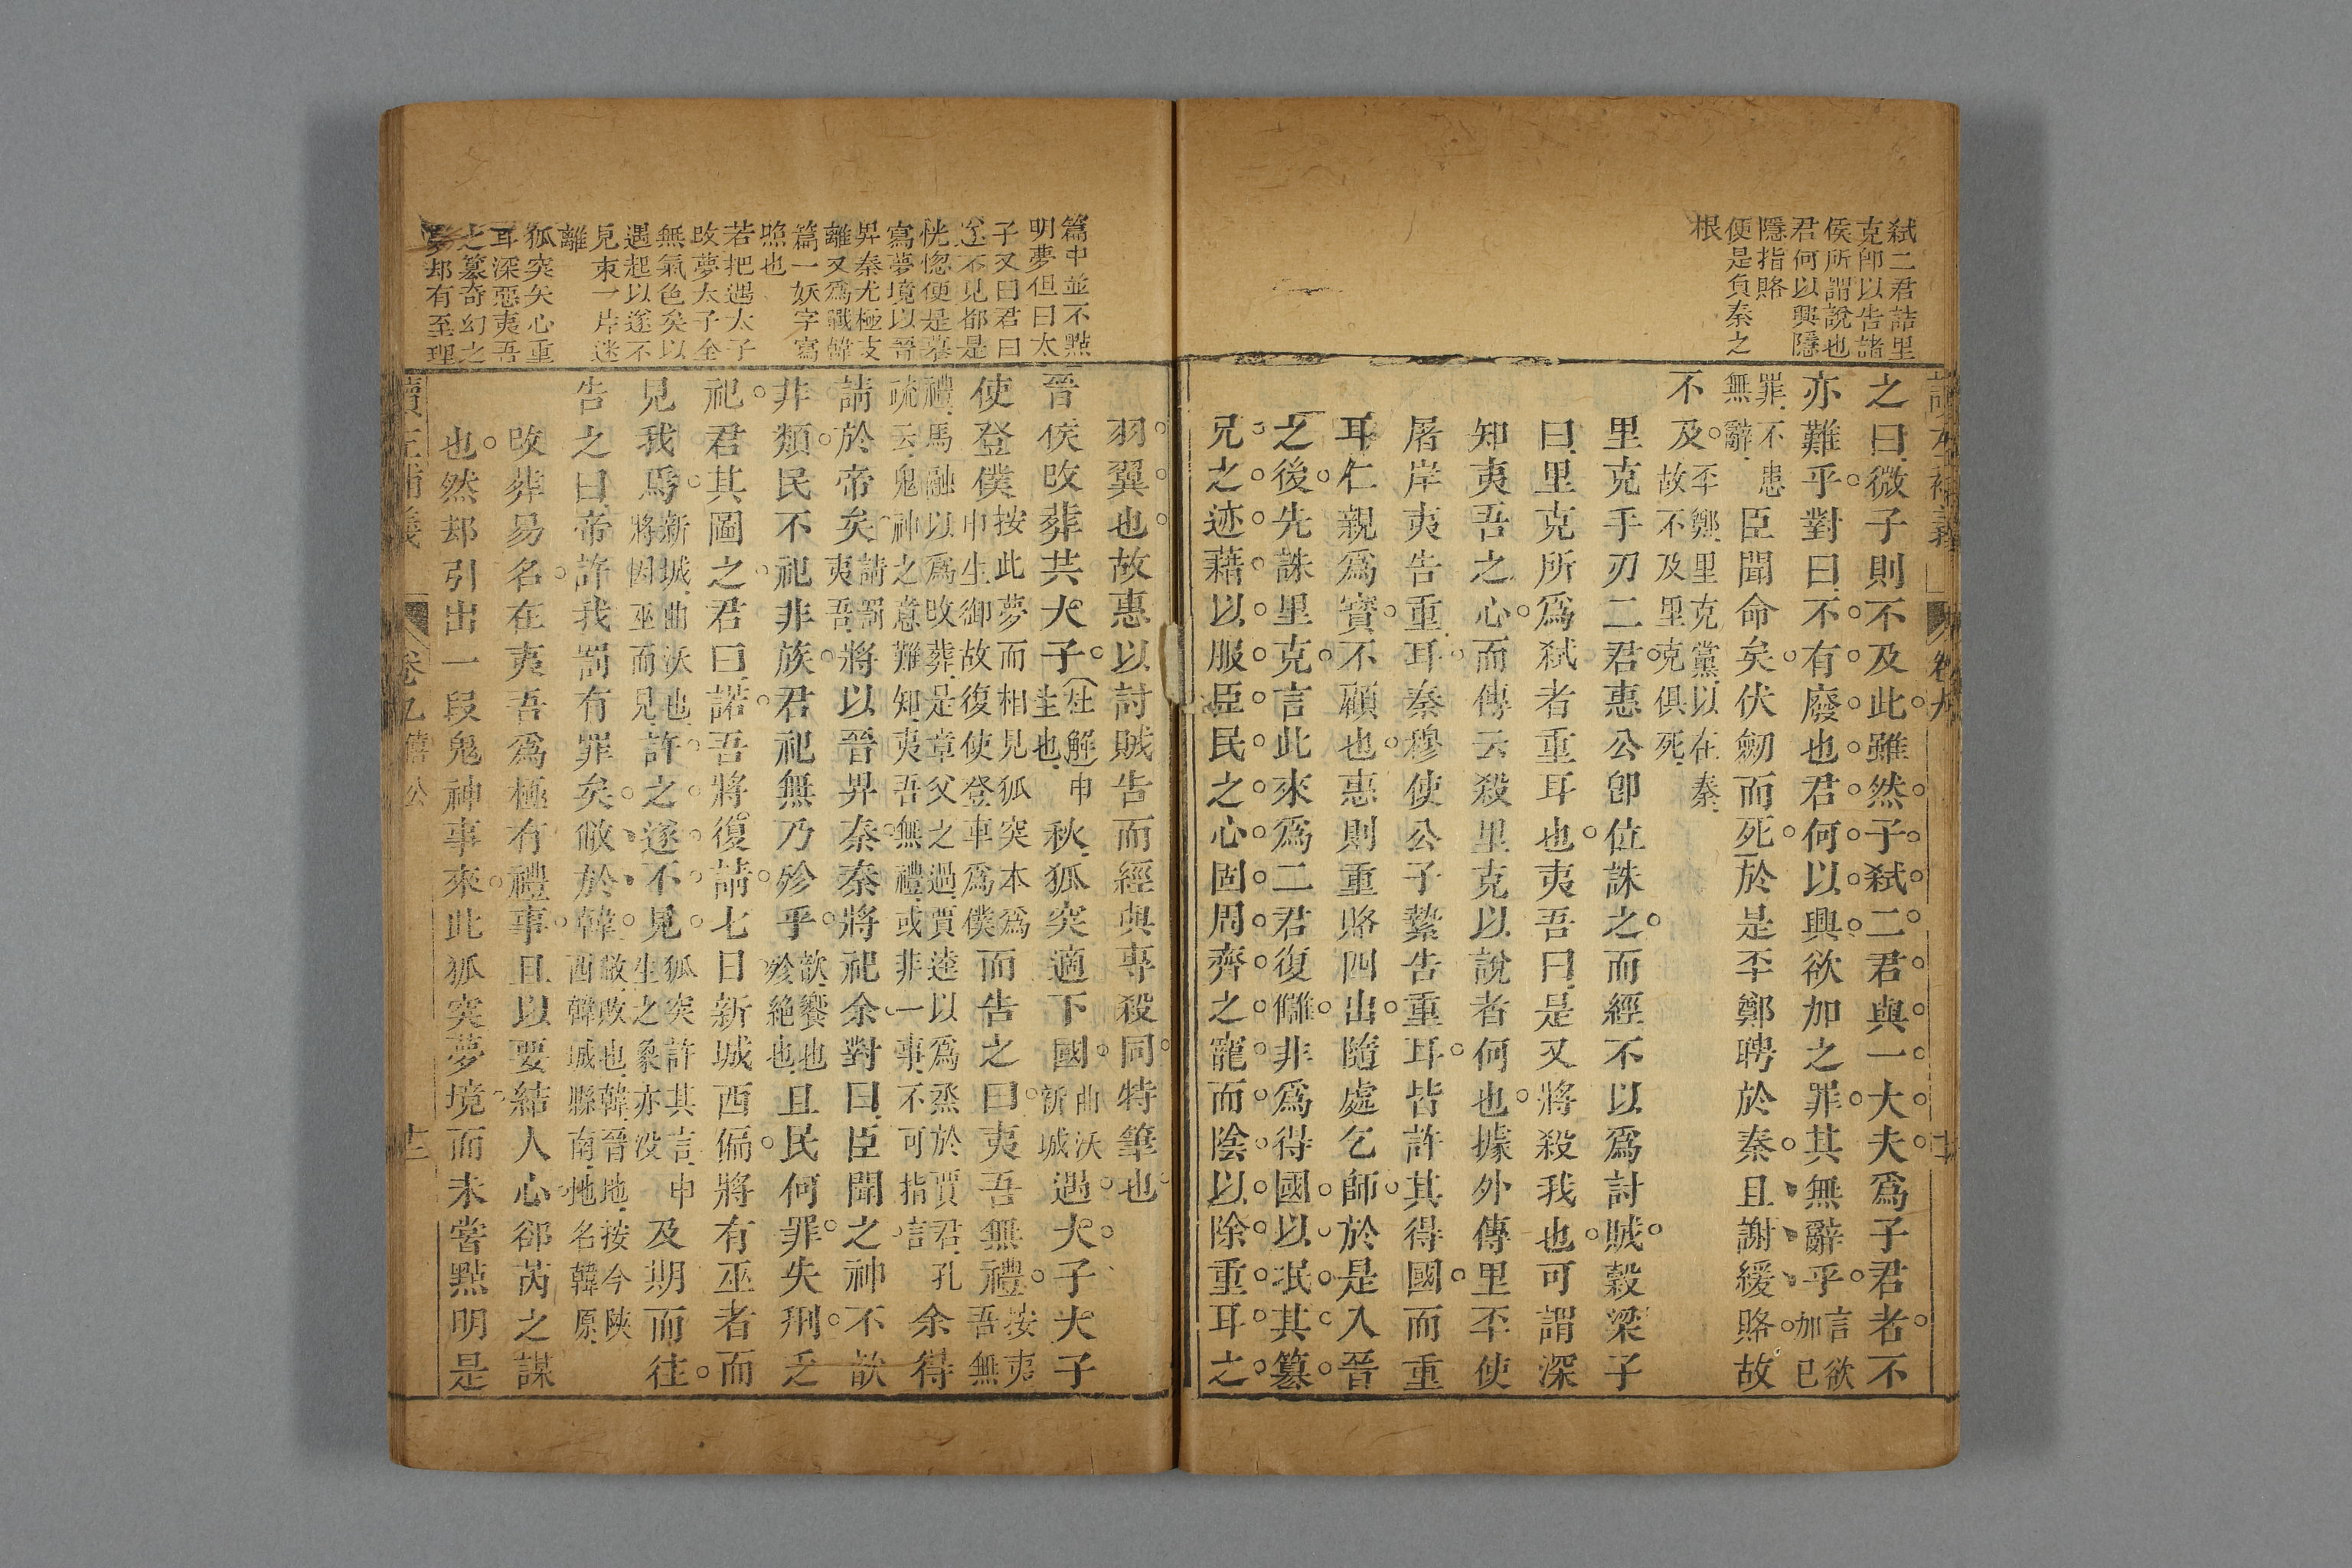 弑二君詰里
克卽以告諸
侯所謂說也
君何以興隱
隱指賂
便是負秦之
根
之曰微子則不及此雖然子弑二君與一大夫爲子君者不
亦難乎對曰不有廢也君何以興欲加之罪其無辭乎言欲加已
罪不患無辭臣聞命矣伏劒而死於是丕鄭聘於秦且謝緩賂故
不及丕鄭里克黨以在秦故不及里克俱死
里克手刃二君惠公卽位誅之而經不以爲討賊穀梁子
曰里克所爲弑者重耳也夷吾曰是又將殺我也可謂深
知夷吾之心而傳云殺里克以說者何也據外傳里丕使
屠岸夷告重耳秦穆使公子縶告重耳皆許其得國而重
耳仁親爲寶不顧也惠則重賂四出隨處乞師於是入晉
之後先誅里克言此來爲二君復讎非爲得國以泯其簒
兄之迹藉以服臣民之心固周齊之寵而陰以除重耳之
篇中並不點
明夢但曰太
子又曰君曰
遂不見都是
恍惚便是摹
寫夢境以吾
畀秦尤極支
離又爲戰韓
篇一妖字寫
照也
若把遇太子
改夢太子全
無氣色矣以
遇起以遂不
見束一片迷
離
狐突矢心重
耳深惡夷吾
之簒奇幻之
夢却有至理
羽翼也故惠以討賊告而經與專殺同特筆也
晉侯改葬共大子杜解申生也秋狐突適下國曲沃新城遇大子大子
使登僕按此夢而相見狐突本爲申生御故復使登車爲僕而告之曰夷吾無禮按夷吾無
禮馬融以爲改葬是章父之過賈逵以爲烝於賈君孔疏云鬼神之意難知夷吾無禮或非一事不可指言余得
請於帝矣請罰夷吾將以晉畀秦秦將祀余對曰臣聞之神不歆
非類民不祀非族君祀無乃殄乎歆饗也殄絕也且民何罪失刑乏
祀君其圖之君曰諾吾將復請七日新城西偏將有巫者而
見我焉新城曲沃也將因巫而見許之遂不見狐突許其言申生之象亦没及期而往
告之曰帝許我罰有罪矣敝於韓敝敗也韓晉地按今陝西韓城縣南地名韓原
改葬易名在夷吾爲極有禮事且以要結人心郤芮之謀
也然却引出一段鬼神事來此狐突夢境而未嘗點明是
卷九僖公